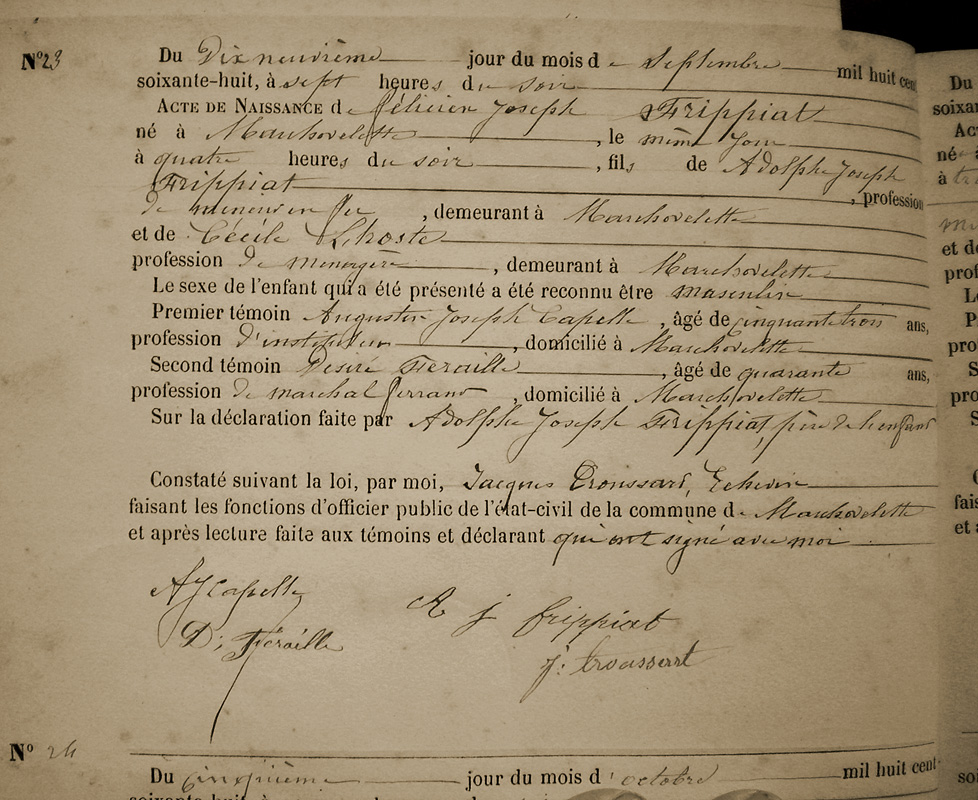 N° 23 Du Dix neuvième jour du mois de Septembre mil huit cent
soixante-huit, à sept heures du soir
ACTE DE NAISSANCE de Félicien Joseph Frippiat
né à Marchovelette, le même jour
à quatre heures du soir, fils de Adolphe Joseph
Frippiat, profession
de mineur en fer, demeurant à Marchovelette
et de Cécile Lhoste
profession de menagère, demeurant à Marchovelette
Le sexe de l'enfant qui a été présenté a été reconnu être masculin
Premier témoin Augustin Joseph Capelle, âgé de cinquante trois ans,
profession d'instituteur, domicilié à Marchovelette
Second témoin Désiré Feraille, âgé de quarante ans,
profession de marchal ferrant, domicilié à Marchovelette
Sur la déclaration faite par Adolphe Joseph Frippiat, père de l'enfant
Constaté suivant la loi, par moi, Jacques Troussart, Echevin
faisant les fonctions d'officier public de l'état-civil de la commune de Marchovelette
et après lecture faite aux témoins et déclarant qui ont signé avec moi
AJ Capelle
A j frippiat
D; Feraille
j: troussart
N° 24
Du cinquième jour du mois d'octobre mil huit cent
Du
soixan
Act
né à
à
et de
prof
Le
P
pro
S
pro
S
fais
et a